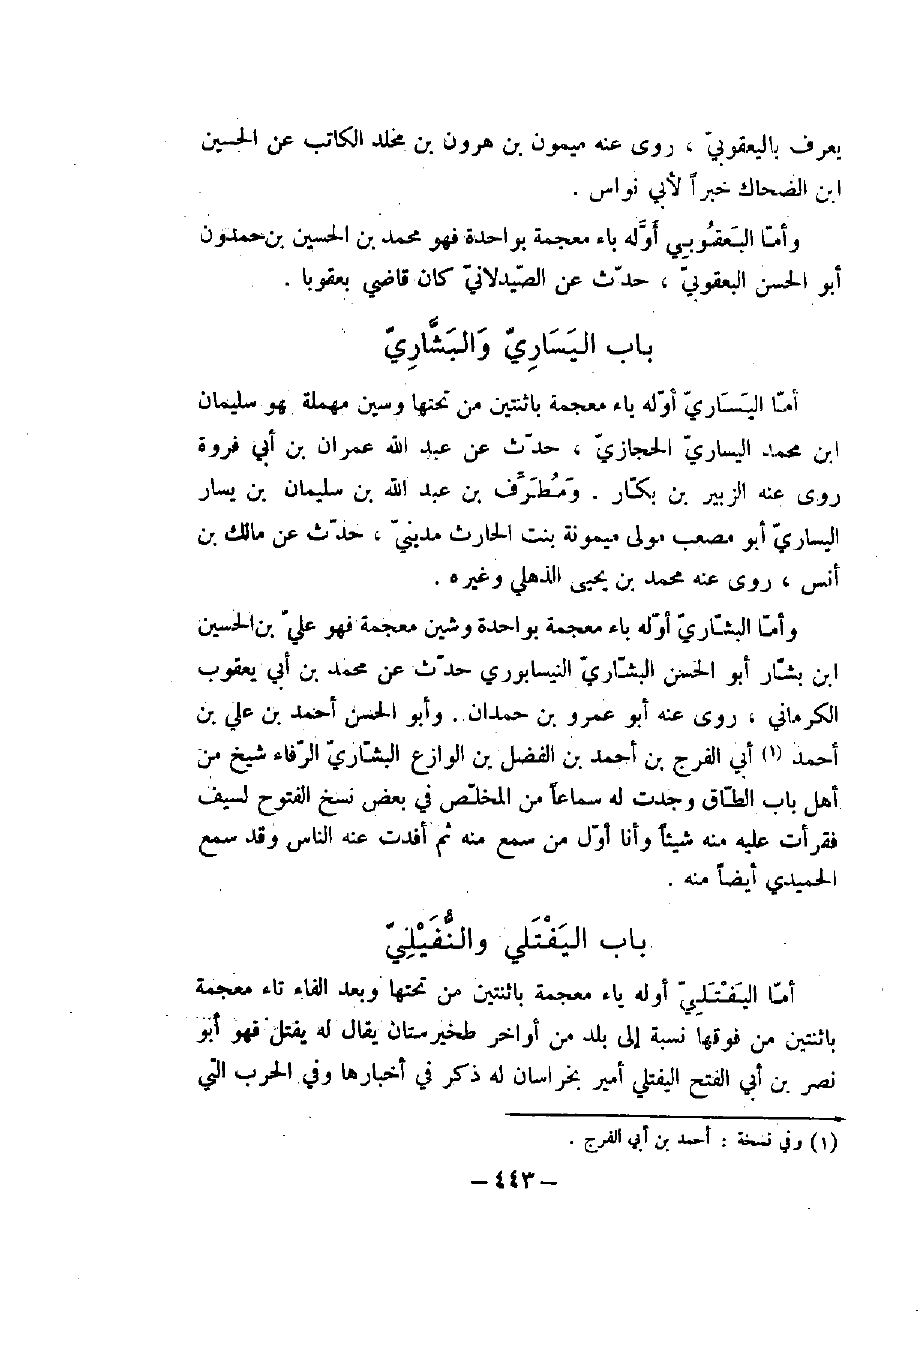 يعرف باليعقوبيّ ، روى عنه ميمون بن هرون بن مخلد الكاتب عن الحسين
ابن الضحاك خبراً لأبي نواس .
وأمّا البَعقُوبي أوَّله باء معجمة بواحدة فهو محمد بن الحسين بن حمدون
أبو الحسن البعقوبيّ ، حدّث عن الصّيدلانيّ كان قاضي بعقوبا .
باب اليَسَارِيّ وَالبَشَّارِيّ
أمّا اليَسَاريّ أوّله ياء معجمة باثنتين من تحتها وسين مهملة هو سليمان
ابن محمد اليساريّ الحجازيّ ، حدّث عن عبد الله عمران بن أبي فروة
روى عنه الزبير بن بكّار . وَمُطَرِّف بن عبد الله بن سليمان بن يسار
اليساريّ أبو مصعب مولى ميمونة بنت الحارث مدينيّ ، حدّث عن مالك بن
أنس ، روى عنه محمد بن يحيى الذهلي وغيره .
وأمّا البشّاريّ أوّله باء معجمة بواحدة وشين معجمة فهو عليّ بن الحسين
ابن بشّار أبو الحسن البشّاريّ النيسابوري حدّث عن محمد بن أبي يعقوب
الكرماني ، روى عنه أبو عمرو بن حمدان . وأبو الحسن أحمد بن علي بن
أحمد (١) أبي الفرج بن أحمد بن الفضل بن الوازع البشّاريّ الرّفاء شيخ من
أهل باب الطّاق وجدت له سماعاً من المخلّص في بعض نسخ الفتوح لسيف
فقرأت عليه منه شيئاً وأنا أوّل من سمع منه ثم أفدت عنه الناس وقد سمع
الحميدي أيضاً منه .
باب اليَفْتَلي والنُّفَيْلِيّ
أمّا اليَفْتَلِيّ أوله ياء معجمة باثنتين من تحتها وبعد الفاء تاء معجمة
باثنتين من فوقها نسبة إلى بلد من أواخر طخيرستان يقال له يفتل فهو أبو
نصر بن أبي الفتح اليفتلي أمير بخراسان له ذكر في أخبارها وفي الحرب التي
(١) وفي نسخة : أحمد بن أبي الفرج .
– ٤٤٣ –